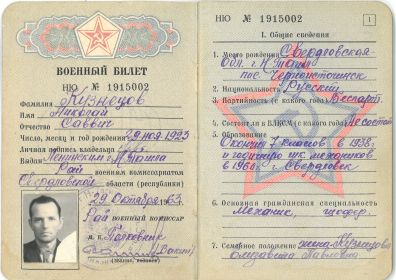 ВОЕННЫЙ БИЛЕТ
НЮ № 1915002
Фамилия Кузнецов
Имя Николай
Отчество Саввич
Число, месяц и год рождения 29 ноя. 1923
Личная подпись владельца
Выдан Ленинским г. Н Тагила
Рай военным комиссариатом
Свердловской области (республики)
29 Октября 1963 г.
Рай ВОЕННЫЙ КОМИССАР
Полковник
НЮ № 1915002
1
I. Общие сведения
1. Место рождения Свердловская
Обл. г. Н Тагил
пос. Черноисточинск
2. Национальность Русский
3. Партийность (с какого года) Беспарт.
4. Состоит ли в ВЛКСМ (с какого года) Не состоит
5. Образование
Окончил 7 классов в 1938
в 1968 г. Свердловск
6. Основная гражданская специальность
Механик, шофер.
7. Семейное положение жена - Кузнецова
Елизавета Павловна